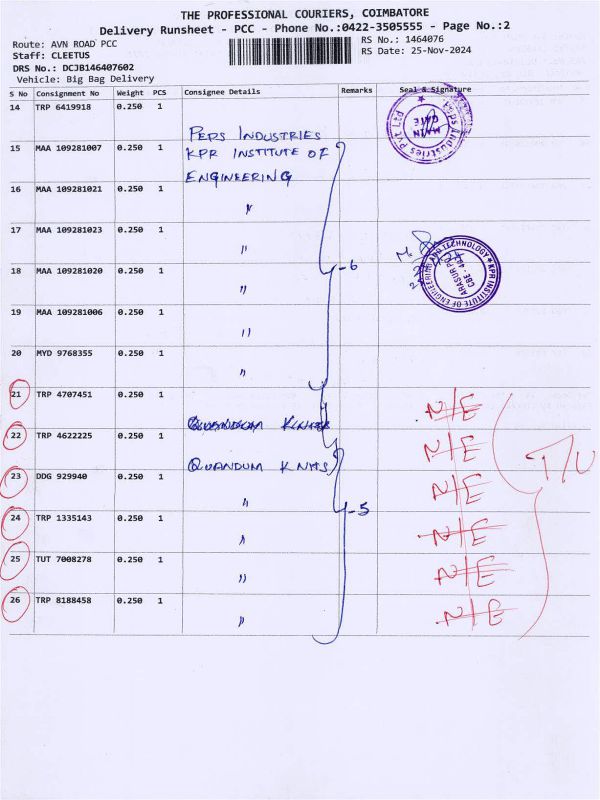 THE PROFESSIONAL COURIERS, COIMBATORE
Delivery Runsheet - PCC - Phone No.:0422-3505555 - Page No.:2
Route: AVN ROAD PCC
Staff: CLEETUS
DRS No.: DCJB146407602
Vehicle: Big Bag Delivery
RS No.: 1464076
RS Date: 25-Nov-2024
S No Consignment No Weight PCS Consignee Details Remarks Seal & Signature
14 TRP 6419918 0.250 1 PEPS INDUSTRIES
15 MAA 109281007 0.250 1 KPR INSTITUTE OF
ENGINEERING
16 MAA 109281021 0.250 1 "
17 MAA 109281023 0.250 1 "
18 MAA 109281020 0.250 1 " -6
19 MAA 109281006 0.250 1 "
20 MYD 9768355 0.250 1 "
21 TRP 4707451 0.250 1 N/E
22 TRP 4622225 0.250 1 QUANDUM KNITS N/E
23 DDG 929940 0.250 1 " N/E
24 TRP 1335143 0.250 1 " -5 N/E
25 TUT 7008278 0.250 1 " N/E
26 TRP 8188458 0.250 1 " N/E
Peps Industries Pvt Ltd
MAIN
GATE
KPR INSTITUTE OF ENGINEERING AND TECHNOLOGY